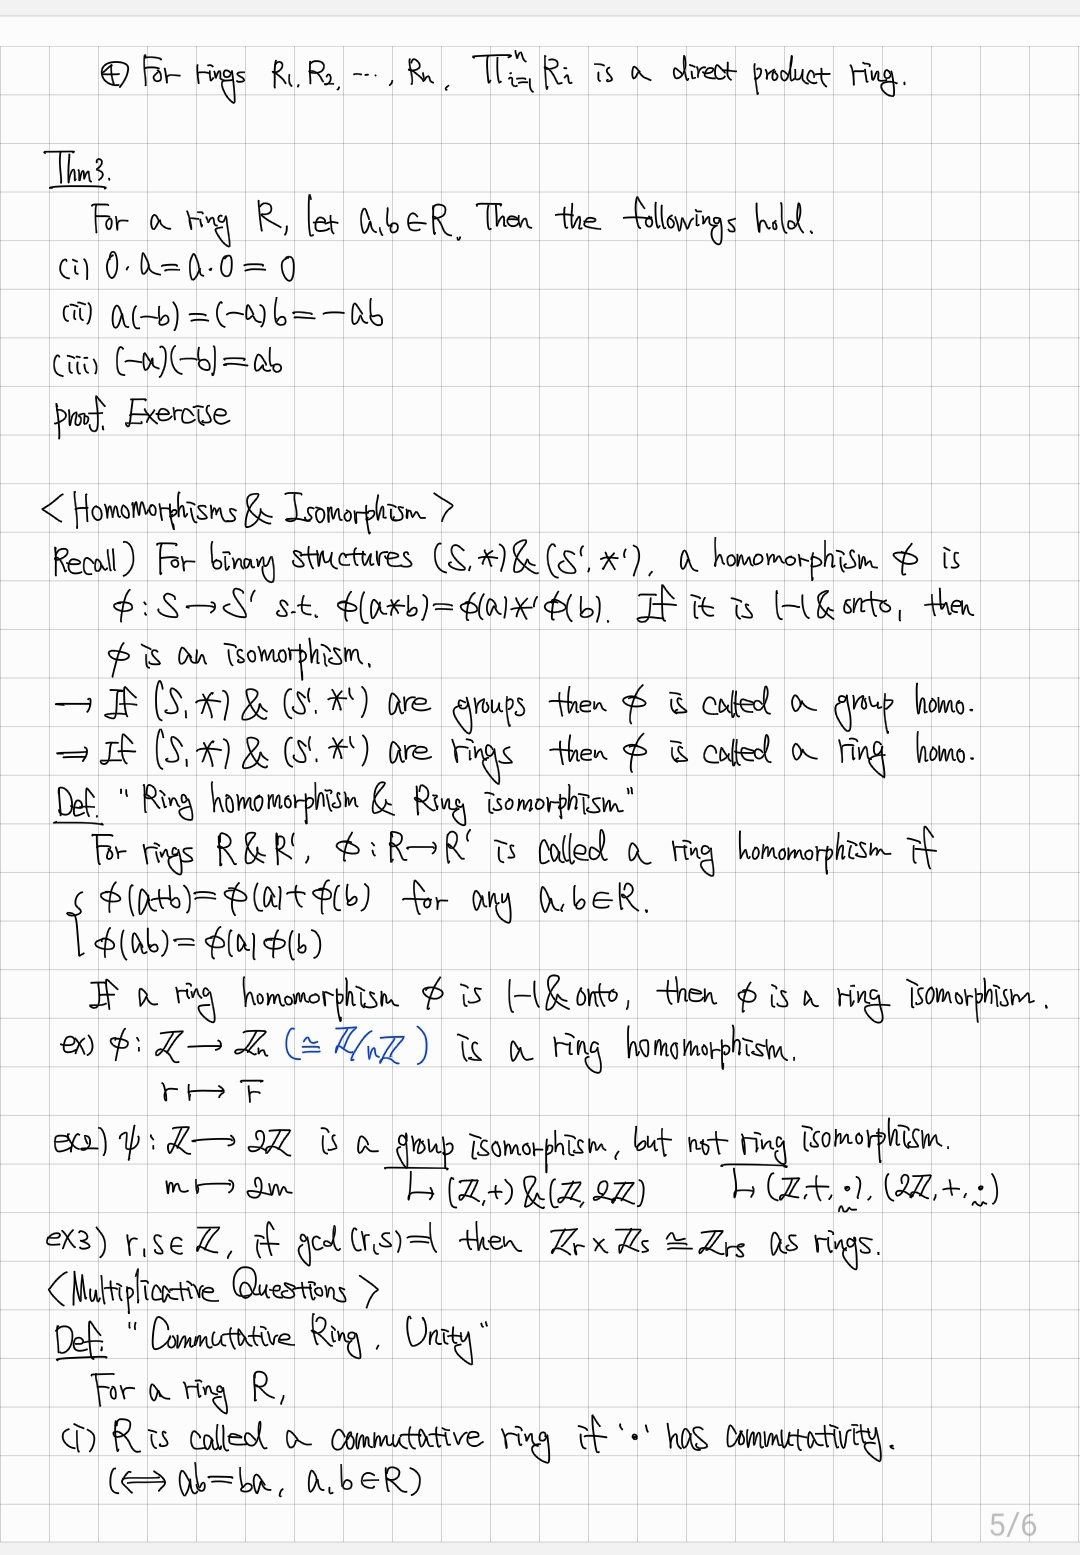 ⊕ For rings R₁, R₂, ⋯, Rₙ, ∏ⁿᵢ₌₁ Rᵢ is a direct product ring.
Thm3.
For a ring R, let a,b∈R. Then the followings hold.
(i) 0·a=a·0=0
(ii) a(-b)=(-a)b=-ab
(iii) (-a)(-b)=ab
proof. Exercise
<Homomorphisms & Isomorphism>
Recall) For binary structures (S,*)&(S',*'), a homomorphism ϕ is
ϕ:S→S' s.t. ϕ(a*b)=ϕ(a)*'ϕ(b). If it is 1-1 & onto, then
ϕ is an isomorphism.
→ If (S,*) & (S',*') are groups then ϕ is called a group homo.
⇒ If (S,*) & (S',*') are rings then ϕ is called a ring homo.
Def. "Ring homomorphism & Ring isomorphism"
For rings R&R', ϕ:R→R' is called a ring homomorphism if
{ ϕ(a+b)=ϕ(a)+ϕ(b) for any a,b∈R.
ϕ(ab)=ϕ(a)ϕ(b)
If a ring homomorphism ϕ is 1-1 & onto, then ϕ is a ring isomorphism.
ex) ϕ: ℤ → ℤₙ (≅ ℤ/nℤ) is a ring homomorphism.
r ↦ r̄
ex2) ψ: ℤ → 2ℤ is a group isomorphism, but not ring isomorphism.
m ↦ 2m ↳ (ℤ,+)&(ℤ,2ℤ) ↳ (ℤ,+,·), (2ℤ,+,·)
ex3) r,s∈ℤ, if gcd(r,s)=1 then ℤᵣ×ℤₛ≅ℤᵣₛ as rings.
<Multiplicative Questions>
Def. "Commutative Ring, Unity"
For a ring R,
(i) R is called a commutative ring if '·' has commutativity.
(⟺ ab=ba, a,b∈R)
5/6